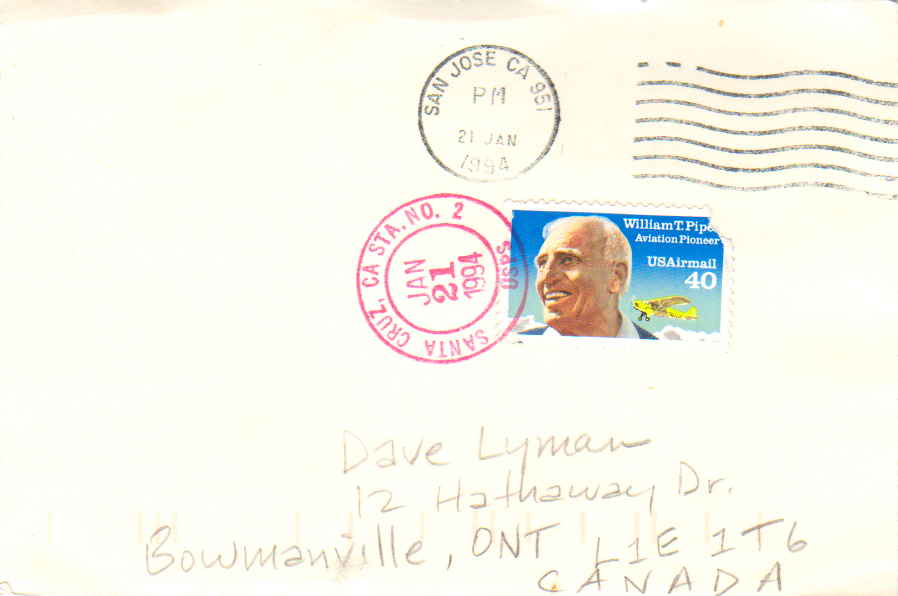 SAN JOSE CA 951
PM
21 JAN
1994
SANTA CRUZ, CA STA. NO. 2
USPS
JAN
21
1994
William T. Pipe
Aviation Pioneer
USAirmail
40
Dave Lyman
12 Hathaway Dr.
Bowmanville, ONT L1E 1T6
CANADA